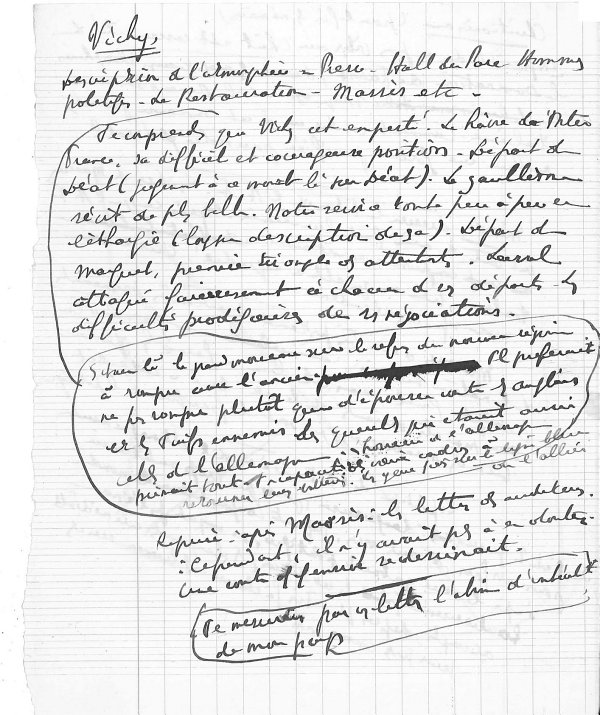 Vichy,
Description de l'atmosphère - Presse - Hall du Parc Hommes
politiques - La Restauration - Massis etc -
Je comprends que Vichy est empesté. Le Havre de l'Inter
France, sa difficile et courageuse position. Départ de
Déat (jugement à ce moment là sur Déat). Le gaullisme
sévit de plus belle. Notre service tombe peu à peu en
léthargie (longue description de ça). Départ de
Marquet, premier triomphe des attentistes. Laval
attaqué furieusement à chacun de ses départs. Les
difficultés prodigieuses de ses négociations.
Situer là le grand morceau sur le refus du nouveau régime
à rompre avec l'ancien Il préférait
ne pas rompre plutôt que d'épouser contre les anglais
et les Juifs ennemis les querelles qui étaient aussi
celles de l'allemagne
retourner leurs vestes. Les yeux fixés sur la ligne bleue
Reprise : après Massis : les lettres des auditeurs.
: Cependant, il n'y avait pas à en douter.
Une contre offensive se dessinait.
Je mesurais par ces lettres l'abîme d'imbécilité
de mon pays